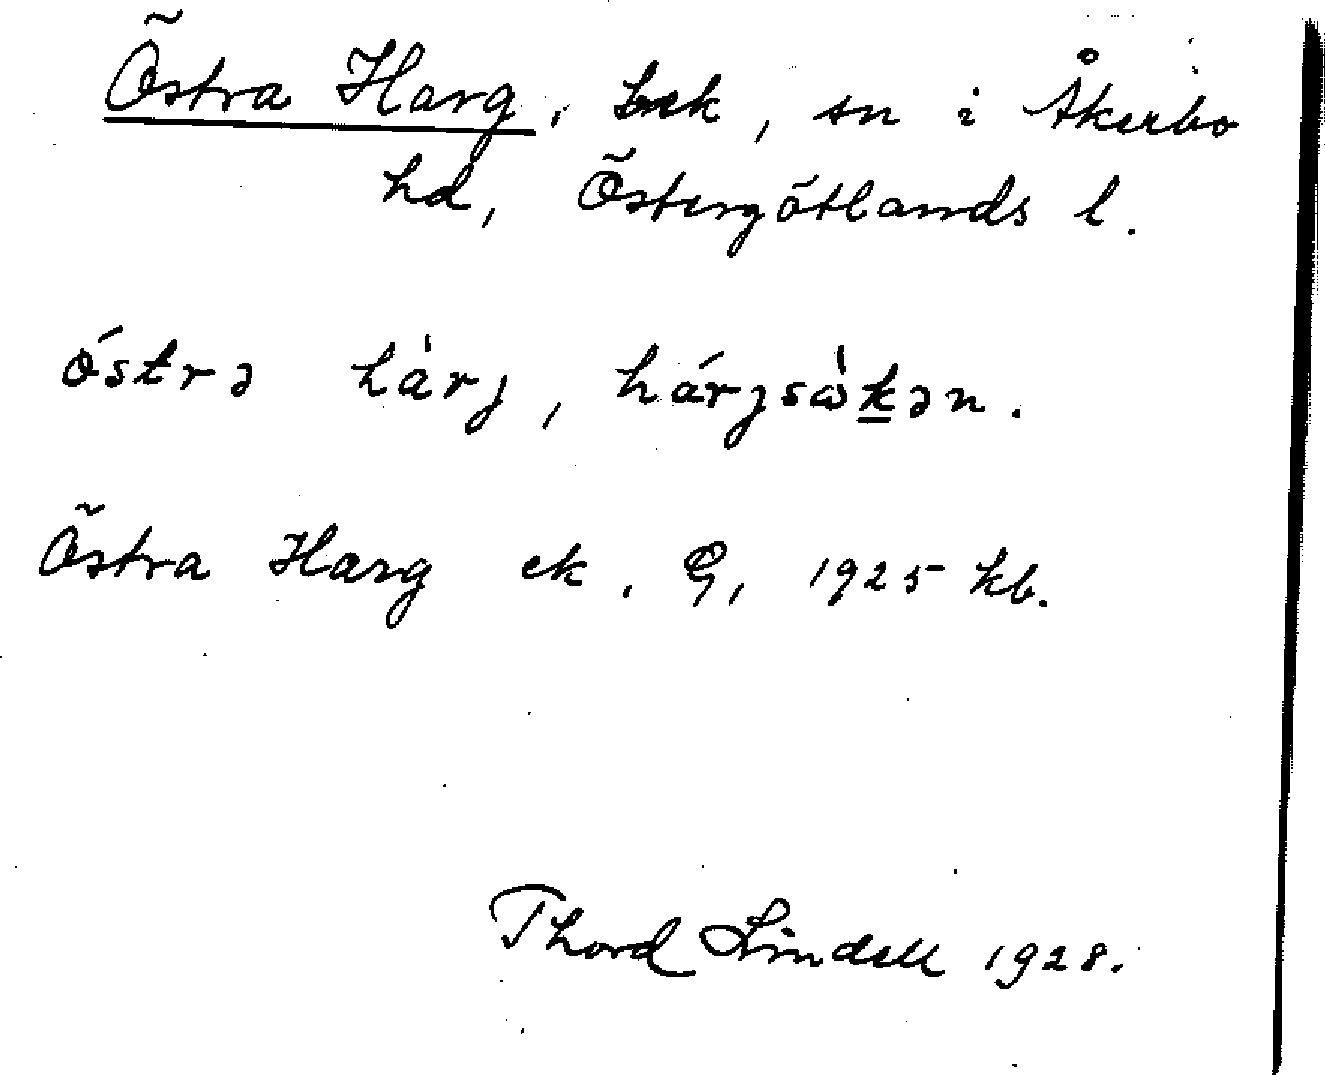 Östra Harg, sn i Åkerbo
hd, Östergötlands l.
östrə hàrj, hárjsὼkən.
Östra Harg ek. G, 1925 kb.
Thord Lindell 1928.